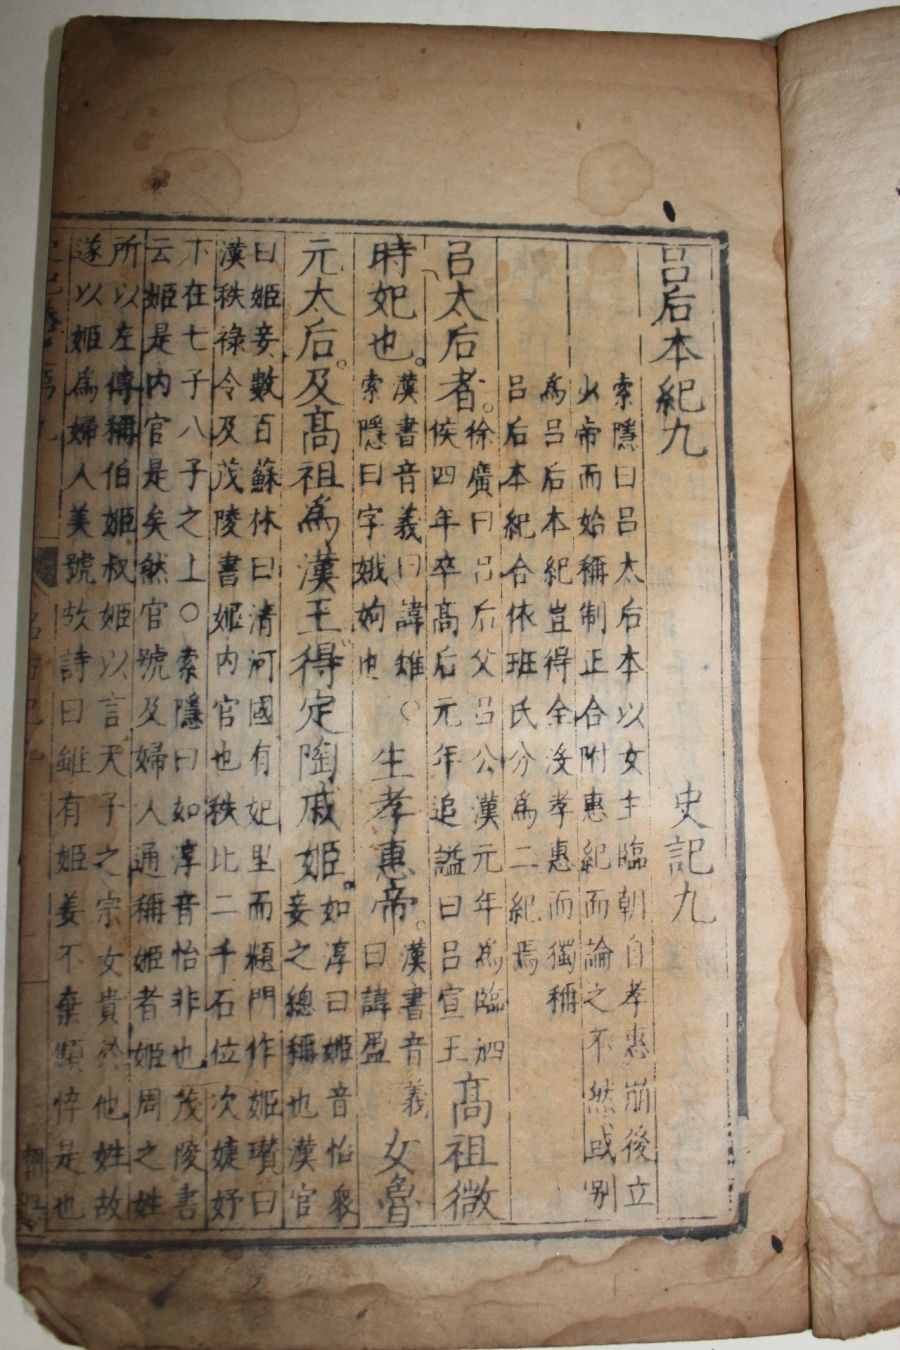 呂后本紀九 史記九
索隱曰呂太后本以女主臨朝自孝惠崩後立
少帝而始稱制正合附惠紀而論之不然或別
爲呂后本紀豈得全沒孝惠而獨稱
呂后本紀合依班氏分爲二紀焉
呂太后者
徐廣曰呂后父呂公漢元年爲臨泗
侯四年卒高后元年追謚曰呂宣王
高祖微
時妃也
漢書音義曰諱雉
索隱曰字娥姁也
○生孝惠帝
漢書音義
曰諱盈
女魯
元太后及高祖爲漢王得定陶戚姬
如淳曰姬音怡衆
妾之總稱也漢官
曰姬妾數百蘇林曰清河國有妃里而題門作姬瓚曰
漢秩祿令及茂陵書姬內官也秩比二千石位次婕妤
下在七子八子之上○索隱曰如淳音怡非也茂陵書
云姬是內官是矣然官號及婦人通稱姬者姬周之姓
所以左傳稱伯姬叔姬以言天子之宗女貴於他姓故
遂以姬爲婦人美號故詩曰雖有姬姜不棄顦悴是也